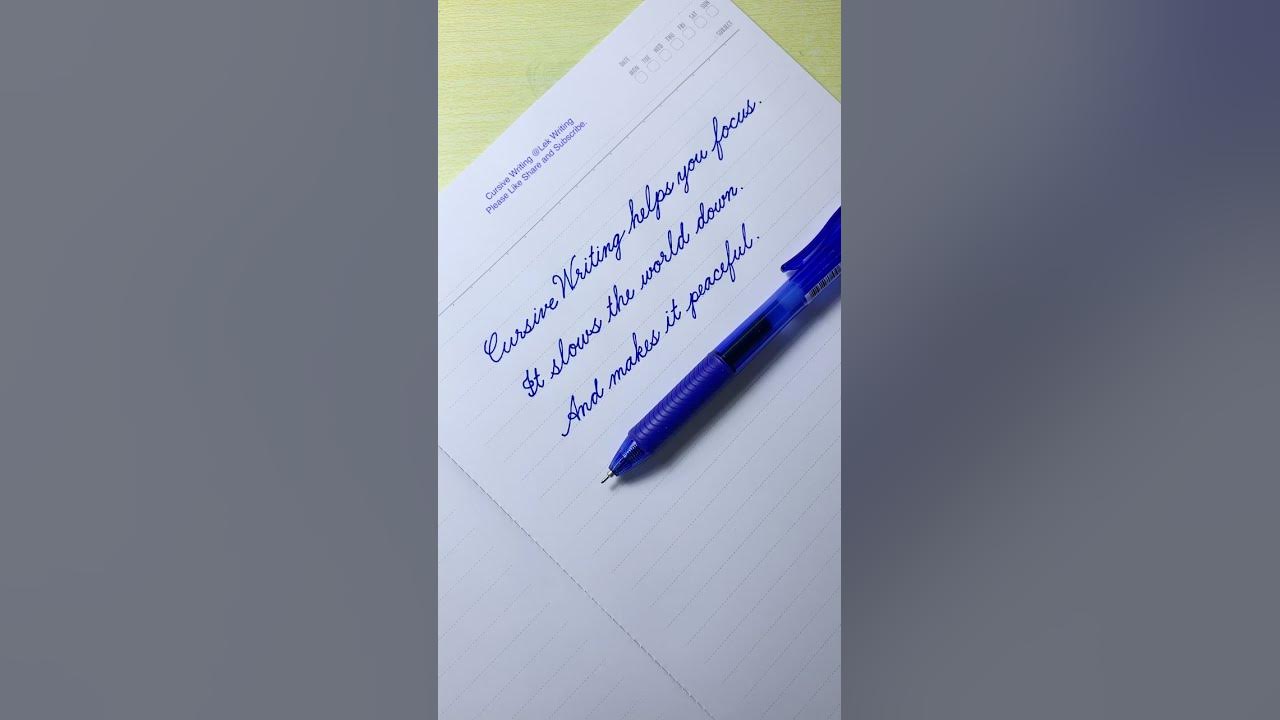 DATE
MON TUE WED THU FRI SAT SUN
SUBJECT
Cursive Writing @Lek Writing
Please Like Share and Subscribe.
Cursive Writing helps you focus.
It slows the world down.
And makes it peaceful.